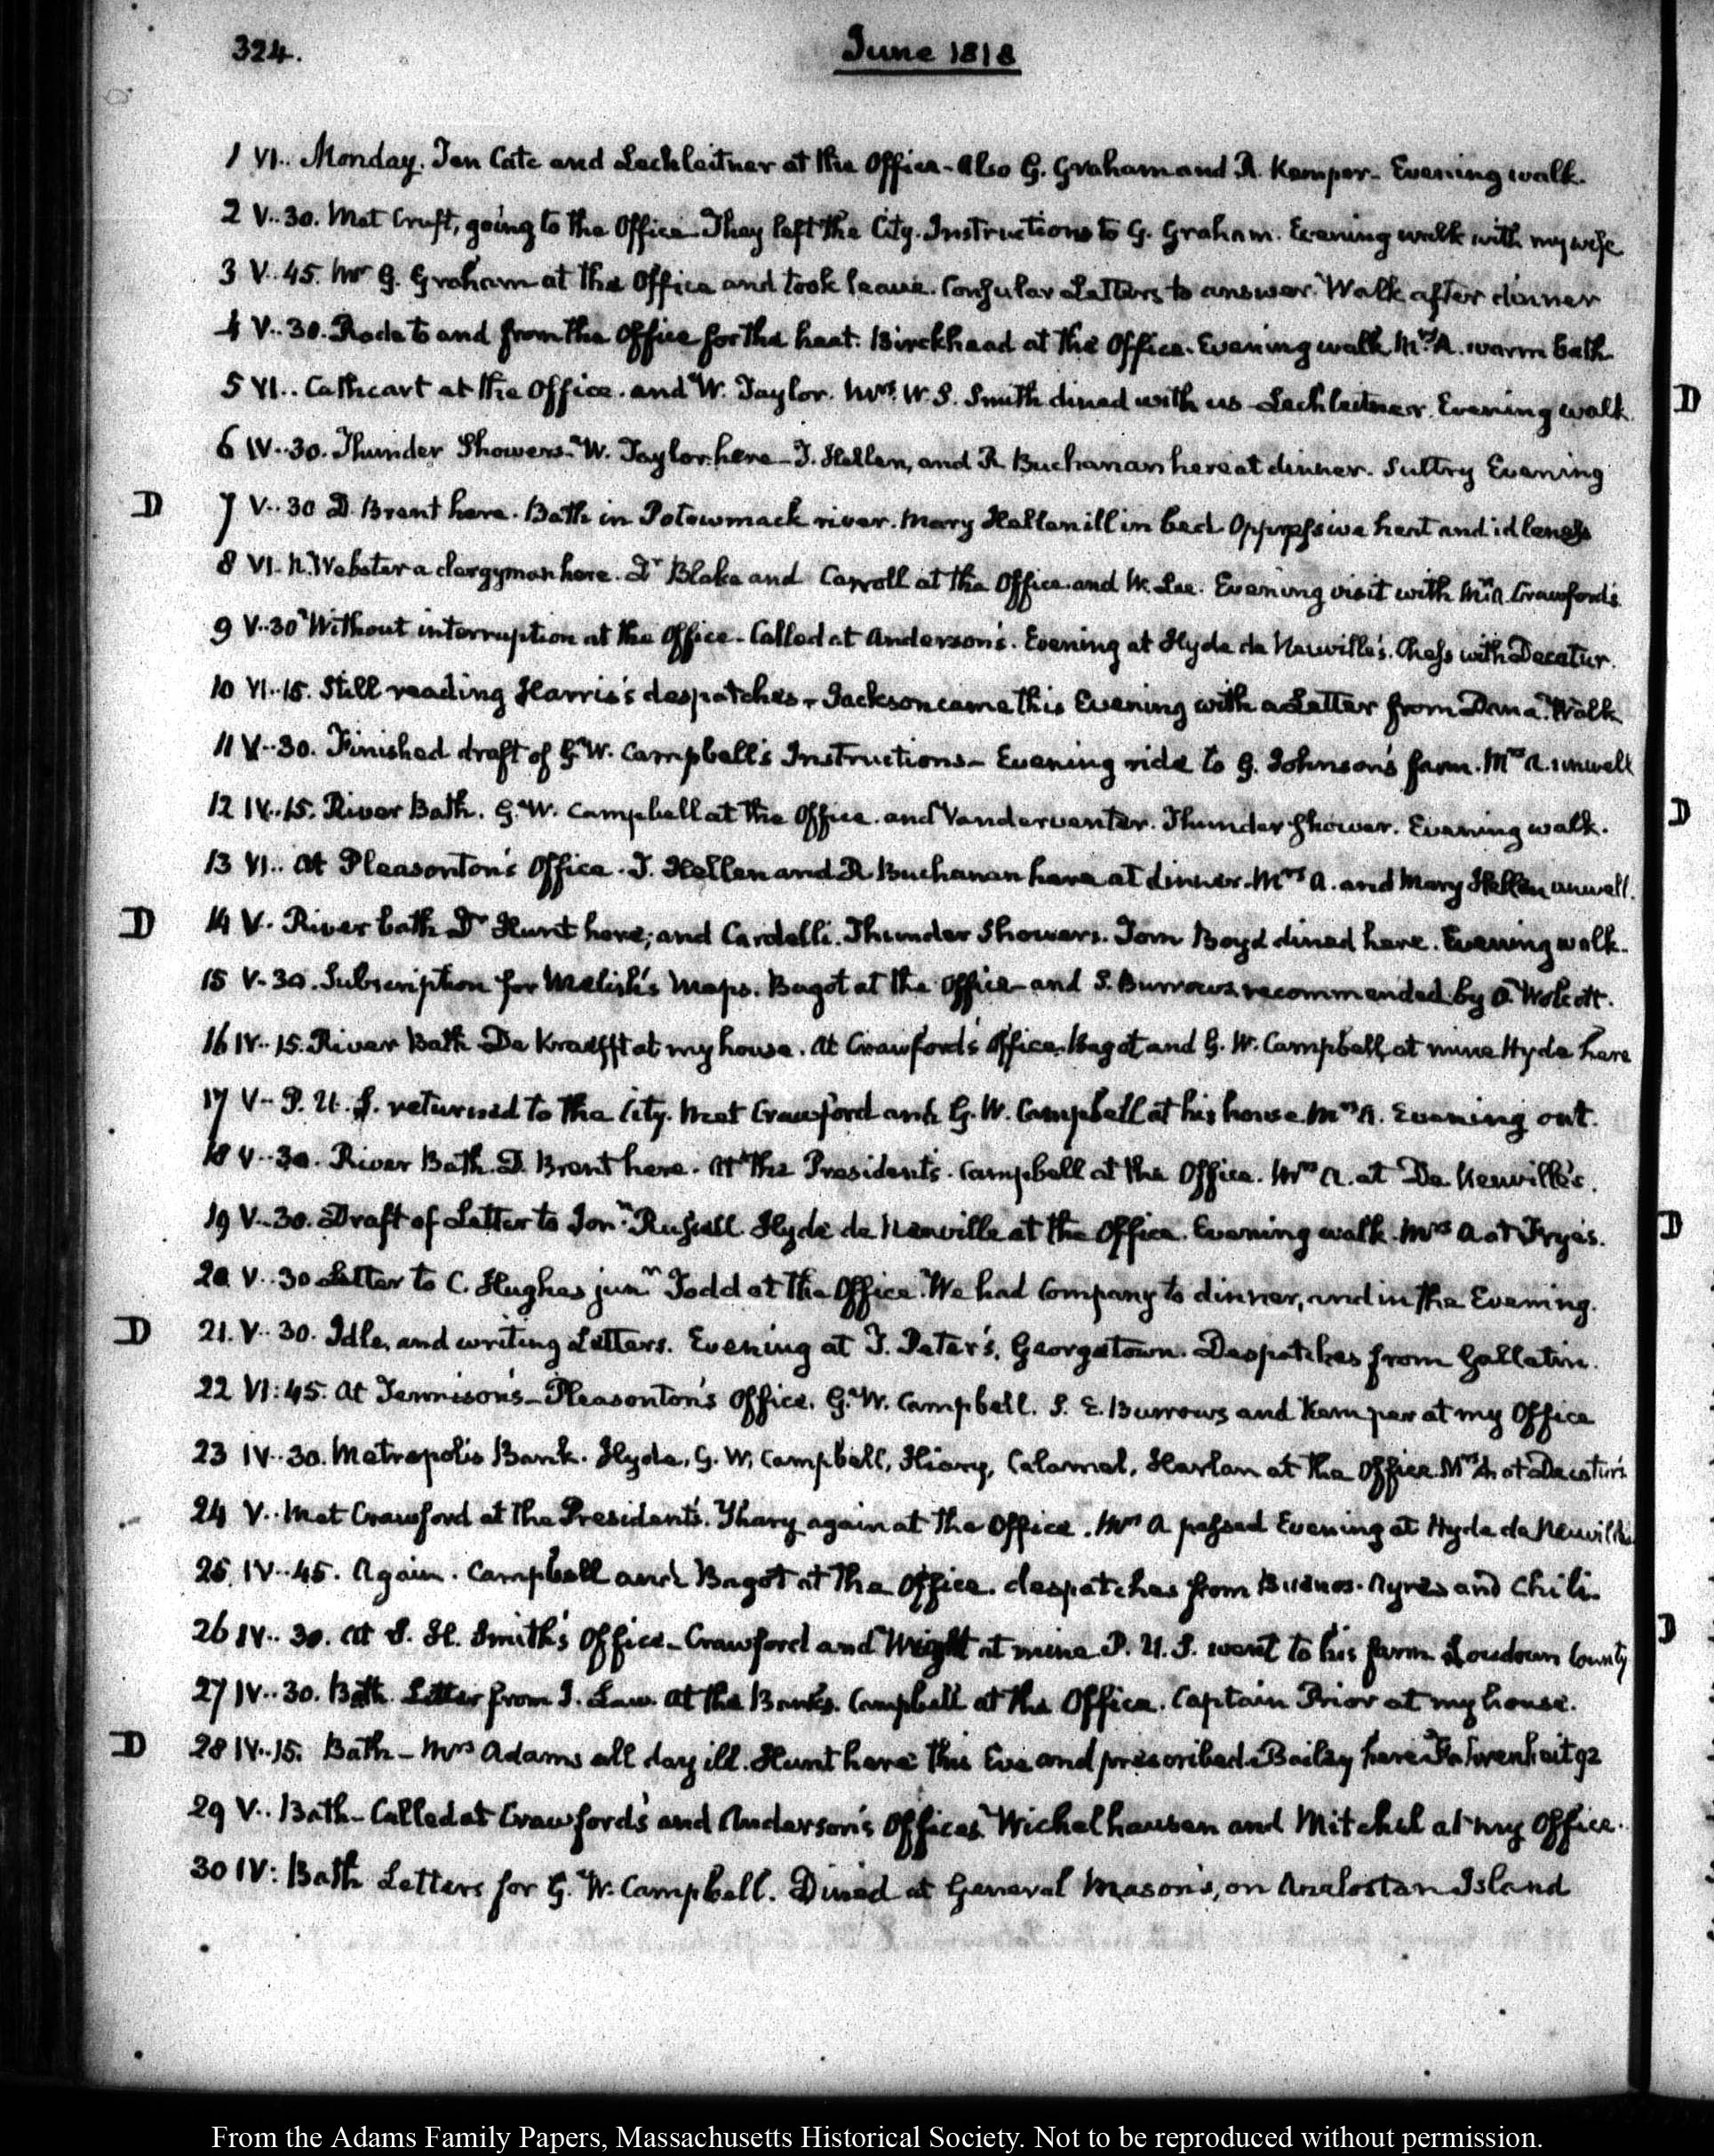 324.
June 1818
1 VI.. Monday. Ten Cate and Lechleitner at the Office - also G. Graham and R. Kemper - Evening walk.
2 V..30. Met Cruft, going to the Office. They left the City. Instructions to G. Graham. Evening walk with my wife
3 V..45. Mr G. Graham at the Office and took leave. Consular Letters to answer. Walk after dinner
4 V..30. Rode to and from the Office for the heat. Birckhead at the Office. Evening walk Mrs A. warm bath.
5 VI.. Cathcart at the Office. and W. Taylor. Mrs W. S. Smith dined with us - Lechleitner. Evening walk. D
6 IV..30. Thunder Showers. W. Taylor here - J. Hellen, and R Buchanan here at dinner. Sultry Evening
D 7 V..30 D. Brent here. Bath in Potowmack river. Mary Hellen ill in bed. Oppressive heat and idleness
8 VI. N. Webster a clergyman here. Dr Blake and Carroll at the Office. and W. Lee. Evening visit with Mrs A. Crawford's.
9 V..30 Without interruption at the Office - Called at Anderson's. Evening at Hyde de Neuville's. Chess with Decatur.
10 VI..15. Still reading Harris's despatches - Jackson came this Evening with a Letter from Dana. Walk
11 V..30. Finished draft of G. W. Campbell's Instructions - Evening ride to G. Johnson's farm. Mrs A. unwell
12 IV..15. River Bath. G. W. Campbell at the Office. and Vanderventer. Thunder Shower. Evening walk. D
13 VI.. At Pleasonton's Office. J. Hellen and R Buchanan here at dinner. Mrs A. and Mary Hellen unwell.
D 14 V. River bath Dr Hunt here; and Cardelli. Thunder Showers. Tom Boyd dined here. Evening walk.
15 V..30. Subscription for Melish's Maps. Bagot at the Office - and S. Burrows recommended by O. Wolcott.
16 IV..15. River Bath - De Kraefft at my house. At Crawford's Office. Bagot and G. W. Campbell, at mine Hyde here
17 V.. P. U. S. returned to the City. Met Crawford and G. W. Campbell at his house. Mrs A. Evening out.
18 V..30. River Bath. D. Brent here. At the President's. Campbell at the Office. Mrs A. at De Neuville's.
19 V..30. Draft of Letter to Jonn Russell. Hyde de Neuville at the Office. Evening walk. Mrs A at Frye's. D
20 V..30 Letter to C. Hughes junr Todd at the Office. We had Company to dinner, and in the Evening.
D 21. V..30. Idle, and writing Letters. Evening at T. Peter's, Georgetown. Despatches from Gallatin.
22 VI:45. At Tennison's - Pleasonton's Office. G. W. Campbell. S. E. Burrows and Kemper at my Office
23 IV..30. Metropolis Bank. Hyde, G. W. Campbell, Calamel, Harlan at the Office. Mrs A at Decatur's
24 V.. Met Crawford at the President's. again at the Office. Mrs A passed Evening at Hyde de Neuville's
25. IV..45. Again. Campbell and Bagot at the Office. despatches from Buenos-Ayres and Chili.
26 IV..30. At S. H. Smith's Office - Crawford and Wright at mine P. U. S. went to his farm Loudoun County D
27 IV..30. Bath. Letter from T. Law. At the Banks. Campbell at the Office. Captain Prior at my house.
D 28 IV..15. Bath - Mrs Adams all day ill. Hunt here this Eve and prescribed. Bailey here Fahrenheit 92
29 V.. Bath - Called at Crawford's and Anderson's Offices. Wichelhausen and Mitchel at my Office.
30 IV: Bath Letters for G. W. Campbell. Dined at General Mason's, on Analostan Island
From the Adams Family Papers, Massachusetts Historical Society. Not to be reproduced without permission.